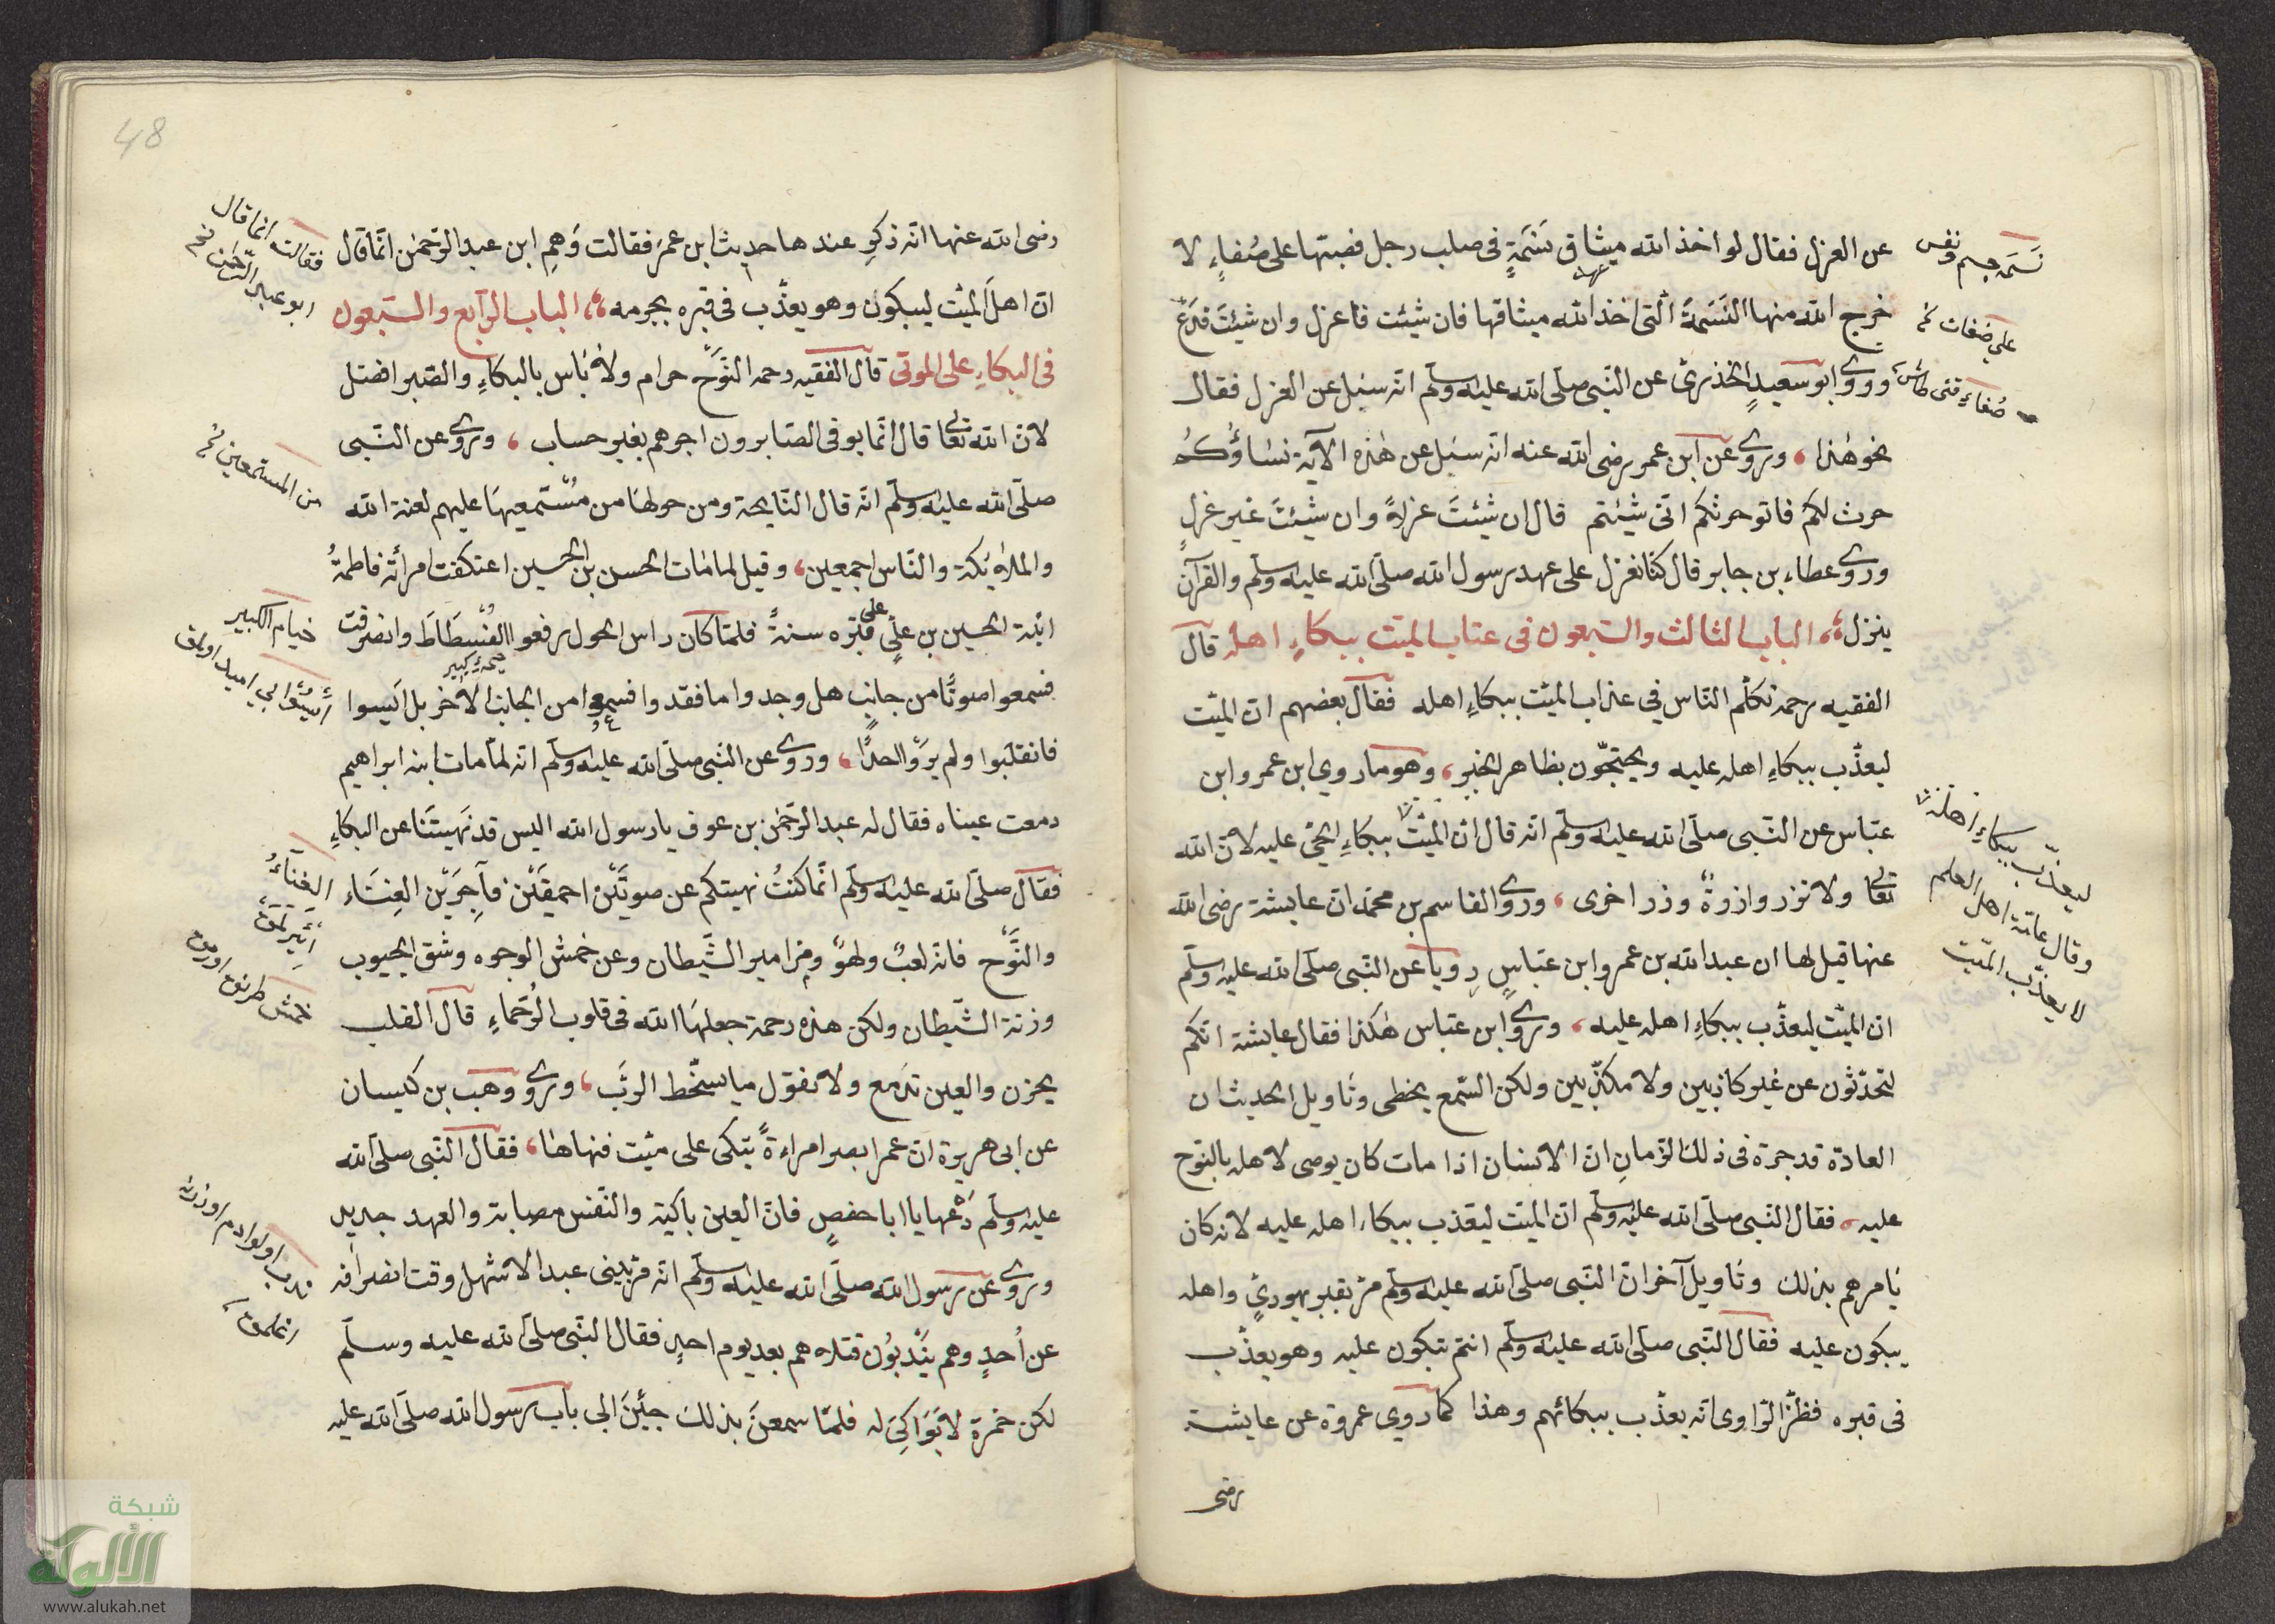 عن العزل فقال لو اخذ الله ميثاق نَسَمَةٍ في صلب رجل فصبّتها على صُفاءٍ لا
خرج الله منها النَسَمَةَ الّتى اخذ الله ميثاقها فان شيئت فاعزل وان شيئتَ فدَعْ
وروى ابو سعيدٍ الخذرىّ عن النّبى صلّى الله عليه وسلّم انّه سئل عن العزل فقال
نحو هٰذا ، وروى عن ابن عمر رضى الله عنه انه سئل عن هٰذه الآية نساؤكُم
حرث لكم فاتو حرثكم انّى شئتم قال ان شيئتَ عزلاً وان شيئتَ غير عزلٍ
وروى عطاء بن جابر قال كنّا نعزل على عهد رسول الله صلّى الله عليه وسلّم والقرآن
ينزل ،، الباب الثالث والسّبعون فى عذاب الميّت ببكاءِ اهله قال
الفقيه رحمه تكلّم النّاس في عذاب الميّت ببكاءِ اهله فقال بعضهم انّ الميّت
ليعذّب ببكاءِ اهله عليه ويحتجّون بظاهر الخبر ، وهو ما روي ابن عمر وابن
عبّاس عن النّبى صلّى الله عليه وسلّم انّه قال انّ الميّت ببكاءِ الحىّ عليه لانّ الله
تعالى ولا تزر وازرةٌ وزر اخرى ، وروى القاسم بن محمّد انّ عايشة رضى الله
عنها قيل لها ان عبد الله بن عمر وابن عبّاسٍ رويا عن النّبى صلّى الله عليه وسلّم
ان الميّت ليعذّب ببكاءِ اهله عليه ، وروى ابن عبّاس هٰكذا فقال عايشة انّكم
لتحدّثون عن غير كاذبين ولا مكذّبين ولكن السّمع يخطى وتاويل الحديث ان
العادة قد جرة فى ذلك الزّمانِ انّ الانسان اذا مات كان يوصى لاهله بالنّوح
عليه ، فقال النّبى صلّى الله عليه وسلّم انّ الميّت ليعذب ببكاء اهله عليه لانّه كان
يامرهم بذلك وتاويل آخر انّ النّبى صلّى الله عليه وسلّم مرّ بقبر يهودىٍّ واهله
يبكون عليه فقال النّبى صلّى الله عليه وسلّم انتم تبكون عليه وهو يعذّب
فى قبره فظنّ الرّاوى انّه يعذّب ببكائهم وهذا كما روي عروة عن عايشة
رضى
نَسَمَه جسم ونفس
على صُفات نخ
ليعذّب ببكاءِ اهله
وقال عامّة اهل العلم
لا يعذّب الميّت
48
رضى الله عنها انّه ذكِر عندها حديث ابن عمرَ فقالت وَهِم ابن عبد الرّحمٰن انّما قال
انّ اهلَ الميّت ليبكون وهو يعذّب فى قبره بجرمه ،، الباب الرّابع والسّبعون
فى البكاءِ على الموتى قال الفقيه رحمه النَّوْحُ حرام ولا باس بالبكاءِ والصّبر افضل
لانّ الله تعالى قال انّما يوفى الصّابرون اجرهم بغير حساب ، وروى عن النّبى
صلّى الله عليه وسلّم انّه قال النّايحة ومن حولها من مُسْتَمعيها عليهم لعنة الله
والملائكة والنّاس اجمعين ، وقيل لما مات الحسن بن الحسين اعتكفت امرأته فاطمةُ
ابنة الحسين بن علىٍّ على قبره سنةً فلمّا كان راس الحول رفعوا الفُسْطَاطَ وانصرفت
فسمعوا صوتًا من جانبٍ هل وجدوا ما فقدوا فسمعوا من الجانب الآخر بل ايَسوا
فانقلبوا ولم يرَوْا احدًا ، وروى عن النّبى صلّى الله عليه وسلّم انّه لمّا مات ابنه ابراهيم
دمعت عيناه فقال له عبد الرّحمٰن بن عوف يا رسول الله اليس قد نهيتَنا عن البكاءِ
فقال صلّى الله عليه وسلّم انّما كنتُ نهيتكم عن صوتَيْن احمقَيْن فآجِرَيْن الغِنَاء
والنَّوْح فانّه لعبٌ ولهوٌ ومزامير الشّيطان وعن خمش الوجوه وشق الجيوب
وزنة الشّيطان ولكن هذه رحمة جعلها الله فى قلوب الرُّحَماءِ قال القلب
يحزن والعين تدمع ولا نقول ما يسخّط الربّ ، وروى وهب بن كيسان
عن ابى هريرة انّ عمر ابصر امراءةً تبكى على ميّت فنهاها ، فقال النّبى صلّى الله
عليه وسلّم دَعْها يا ابا حفصٍ فانّ العين باكية والنّفس مصابة والعهد جديد
وروى عن رسول الله صلّى الله عليه وسلّم انّه مرّ ببنى عبد الاشهل وقت انصرافه
عن اُحدٍ وهم يَنْدبُون قتلاهم بعد يوم احدٍ فقال النّبى صلّى الله عليه وسلّم
لكن حمزة لا بَوَاكِىَ له فلمّا سمعنَ بذلك جيْنَ الى باب رسول الله صلّى الله عليه
فقالت انما قال
ابو عبد الرّحمٰن نخ
من المستمعين نخ
خيام الكبير
الغنآءُ
شبكة
الألوكة
www.alukah.net